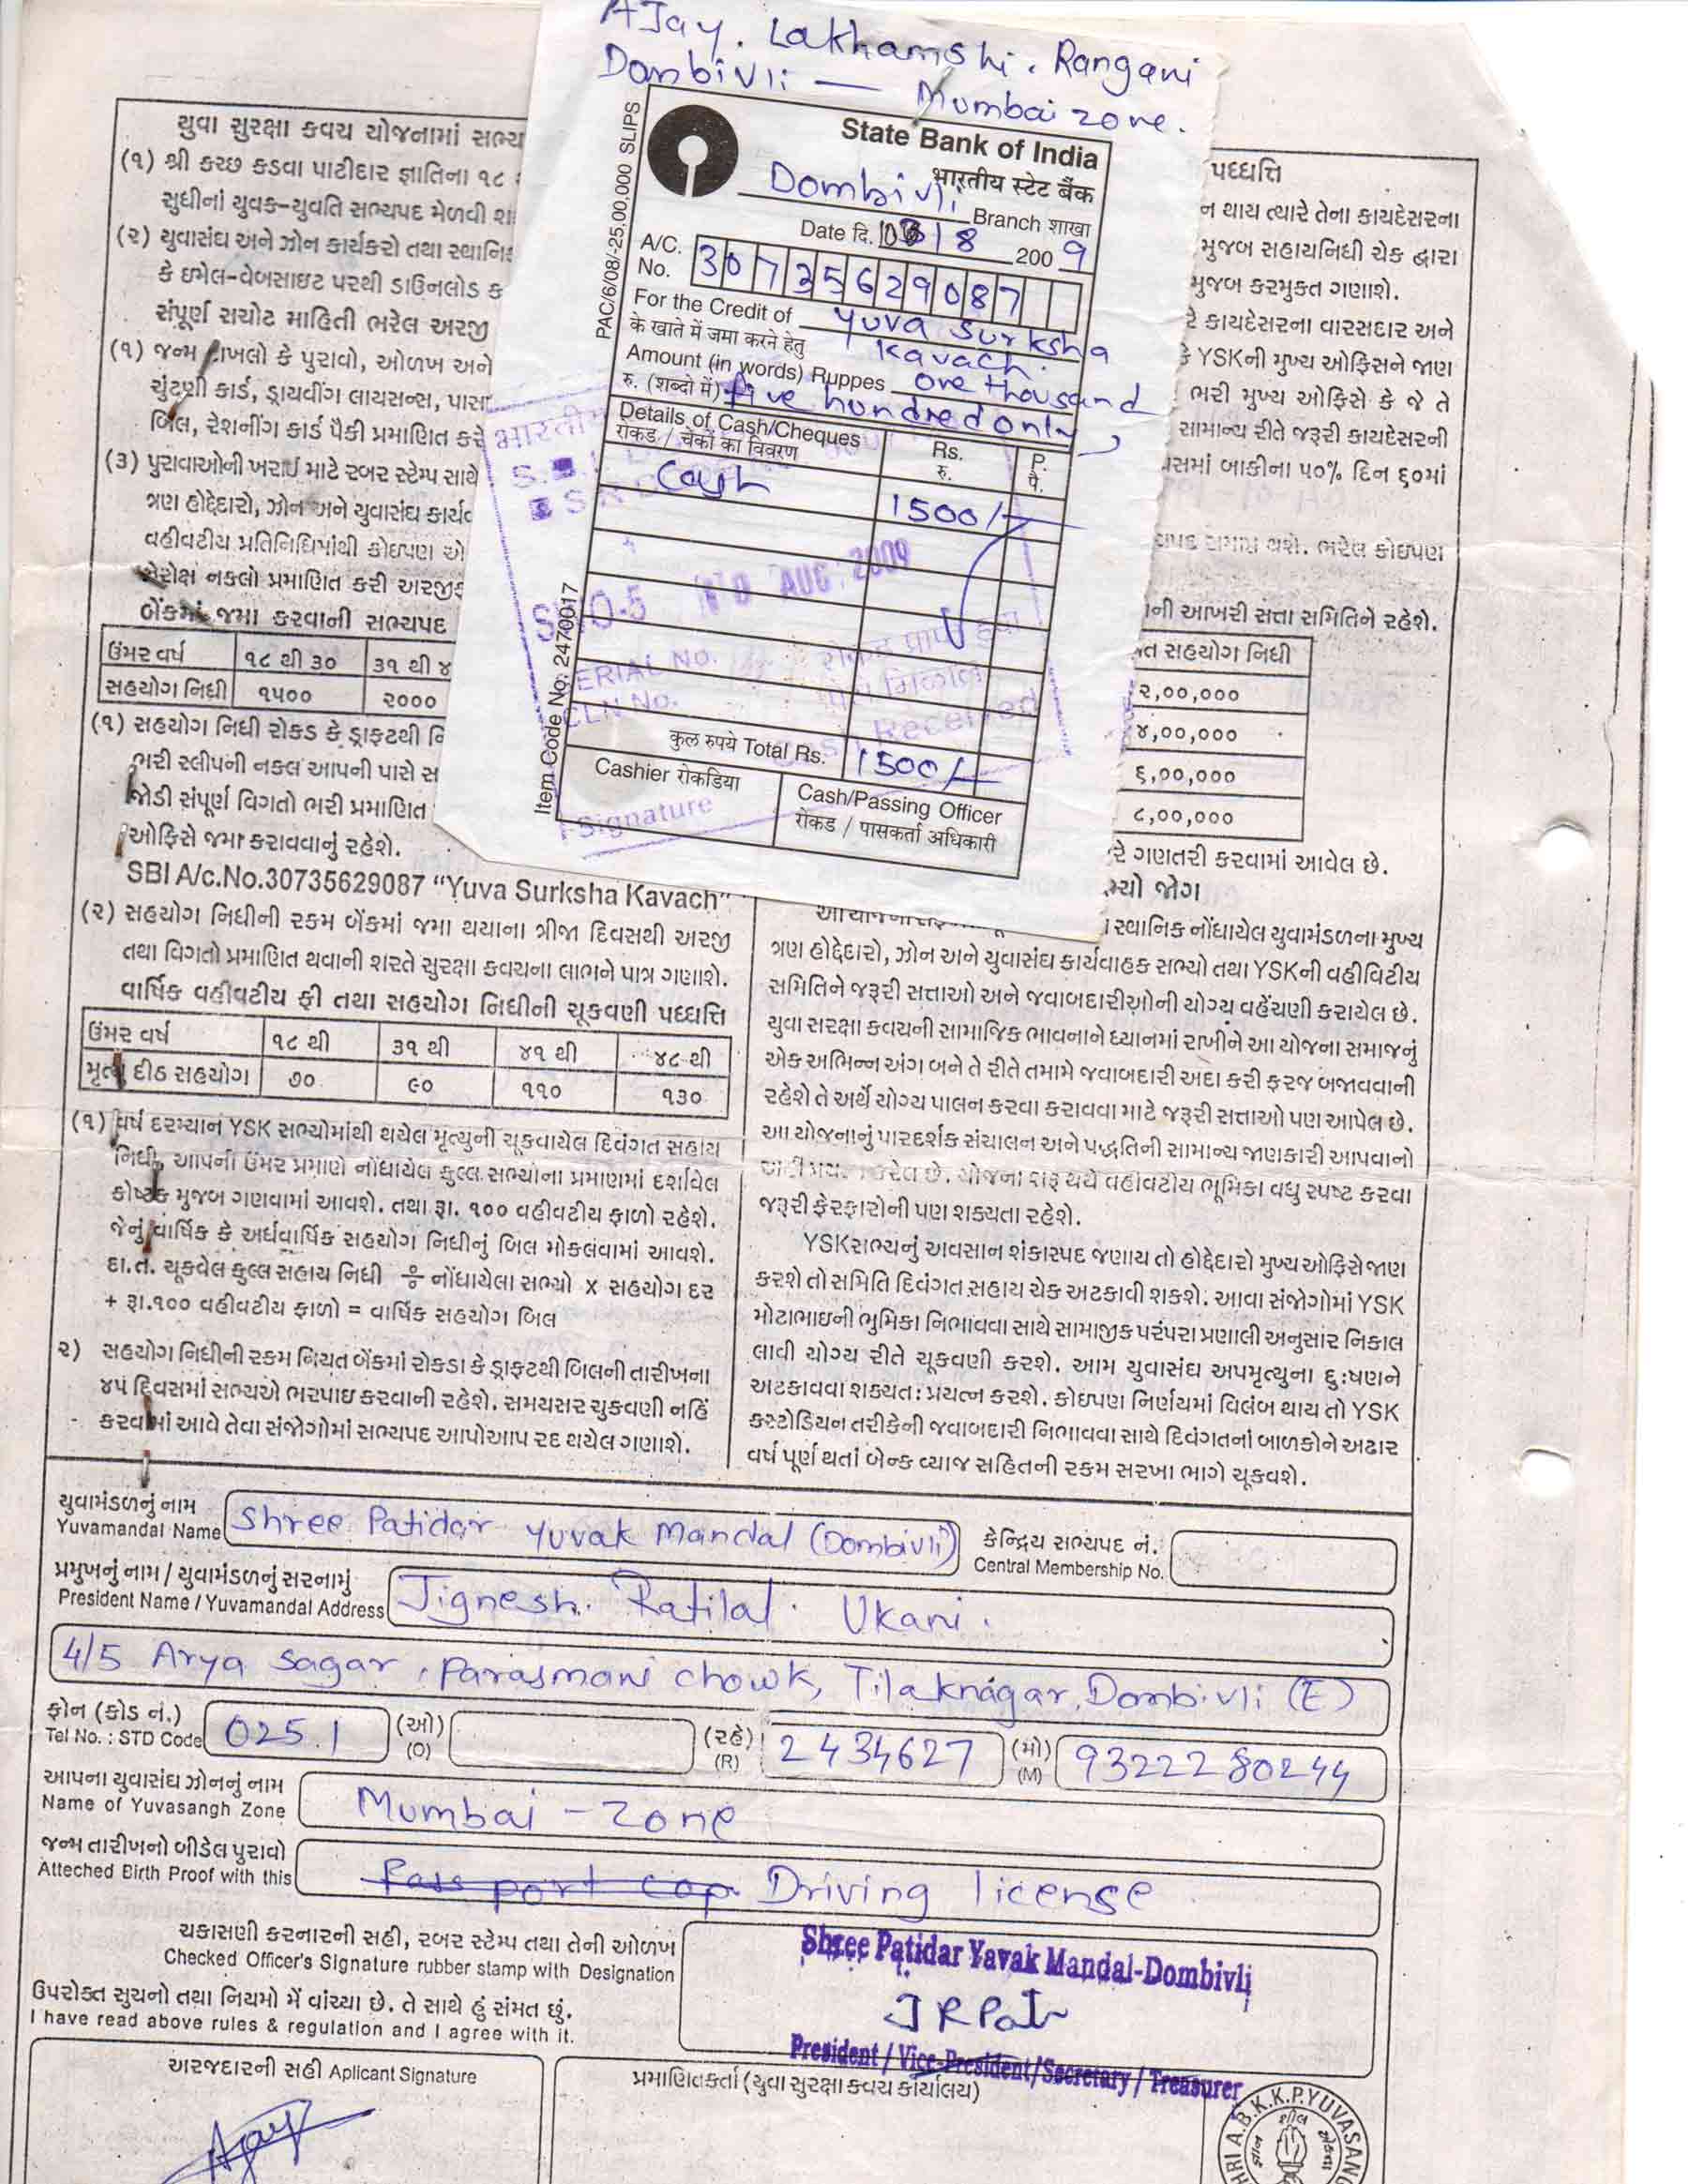 AJay. Lakhamshi. Rangani
Dombivli — Mumbai zone.
State Bank of India
भारतीय स्टेट बैंक
Dombivli Branch शाखा
Date दि. 8 2009
A/C. No. 30735629087
For the Credit of Yuva Surksha
के खाते में जमा करने हेतु Kavach.
Amount (in words) Ruppes one thousand
रु. (शब्दो में) five hundred only
Details of Cash/Cheques Rs. P.
रोकड / चेकों का विवरण रु. पै.
Cash 1500/-
AUG. 2009
SWO-5
SERIAL No.
CLN No.
Received
कुल रुपये Total Rs. 1500/-
Cashier रोकडिया
Cash/Passing Officer
रोकड / पासकर्ता अधिकारी
Signature
PAC/6/08/-25,00,000 SLIPS
Item Code No: 2470017
યુવા સુરક્ષા કવચ યોજનામાં સભ્ય
(૧) શ્રી કચ્છ કડવા પાટીદાર જ્ઞાતિના ૧૮
સુધીનાં યુવક-યુવતિ સભ્યપદ મેળવી શ
(૨) યુવાસંઘ અને ઝોન કાર્યકરો તથા સ્થાનિક
કે ઇમેલ-વેબસાઇટ પરથી ડાઉનલોડ ક
સંપૂર્ણ સચોટ માહિતી ભરેલ અરજી
(૧) જન્મ દાખલો કે પુરાવો, ઓળખ અને
ચુંટણી કાર્ડ, ડ્રાયવીંગ લાયસન્સ, પાસ
બિલ, રેશનીંગ કાર્ડ પૈકી પ્રમાણિત કરે
(૩) પુરાવાઓની ખરાઇ માટે રબર સ્ટેમ્પ સાથે
ત્રણ હોદ્દેદારો, ઝોન અને યુવાસંઘ કાર્ય
વહીવટીય પ્રતિનિધિમાંથી કોઇપણ એ
ઝેરોક્ષ નકલો પ્રમાણિત કરી અરજી
બેંકમાં જમા કરવાની સભ્યપદ
ઉંમર વર્ષ ૧૮ થી ૩૦ ૩૧ થી ૪
સહયોગ નિધી ૧૫૦૦ ૨૦૦૦
(૧) સહયોગ નિધી રોકડ કે ડ્રાફટથી નિ
ભરી સ્લીપની નકલ આપની પાસે સ
જોડી સંપૂર્ણ વિગતો ભરી પ્રમાણિત
ઓફિસે જમા કરાવવાનું રહેશે.
SBI A/c.No.30735629087 “Yuva Surksha Kavach”
(૨) સહયોગ નિધીની રકમ બેંકમાં જમા થયાના ત્રીજા દિવસથી અરજી
તથા વિગતો પ્રમાણિત થવાની શરતે સુરક્ષા કવચના લાભને પાત્ર ગણાશે.
વાર્ષિક વહીવટીય ફી તથા સહયોગ નિધીની ચૂકવણી પધ્ધતિ
ઉંમર વર્ષ ૧૮ થી ૩૧ થી ૪૧ થી ૪૮ થી
મૃત્યુ દીઠ સહયોગ ૭૦ ૯૦ ૧૧૦ ૧૩૦
(૧) વર્ષ દરમ્યાન YSK સભ્યોમાંથી થયેલ મૃત્યુની ચૂકવાયેલ દિવંગત સહાય
નિધી, આપની ઉંમર પ્રમાણે નોંધાયેલ કુલ્લ સભ્યોના પ્રમાણમાં દર્શાવેલ
કોષ્ટક મુજબ ગણવામાં આવશે. તથા રૂા. ૧૦૦ વહીવટીય ફાળો રહેશે.
જેનું વાર્ષિક કે અર્ધવાર્ષિક સહયોગ નિધીનું બિલ મોકલવામાં આવશે.
દા.ત. ચૂકવેલ કુલ્લ સહાય નિધી ÷ નોંધાયેલા સભ્યો x સહયોગ દર
+ રૂા.૧૦૦ વહીવટીય ફાળો = વાર્ષિક સહયોગ બિલ
૨) સહયોગ નિધીની રકમ નિયત બેંકમાં રોકડા કે ડ્રાફટથી બિલની તારીખના
૪૫ દિવસમાં સભ્યએ ભરપાઇ કરવાની રહેશે. સમયસર ચુકવણી નહિં
કરવામાં આવે તેવા સંજોગોમાં સભ્યપદ આપોઆપ રદ થયેલ ગણાશે.
પધ્ધતિ
ન થાય ત્યારે તેના કાયદેસરના
મુજબ સહાયનિધી ચેક દ્વારા
મુજબ કરમુક્ત ગણાશે.
કાયદેસરના વારસદાર અને
YSKની મુખ્ય ઓફિસને જાણ
ભરી મુખ્ય ઓફિસે કે જે તે
સામાન્ય રીતે જરૂરી કાયદેસરની
બાકીના ૫૦% દિન ૬૦માં
થશે. ભરેલ કોઇપણ
ની આખરી સત્તા સમિતિને રહેશે.
સહયોગ નિધી
૨,૦૦,૦૦૦
૪,૦૦,૦૦૦
૬,૦૦,૦૦૦
૮,૦૦,૦૦૦
ગણતરી કરવામાં આવેલ છે.
જોગ
સ્થાનિક નોંધાયેલ યુવામંડળના મુખ્ય
ત્રણ હોદ્દેદારો, ઝોન અને યુવાસંઘ કાર્યવાહક સભ્યો તથા YSKની વહીવિટીય
સમિતિને જરૂરી સત્તાઓ અને જવાબદારીઓની યોગ્ય વહેંચણી કરાયેલ છે.
યુવા સરક્ષા કવચની સામાજિક ભાવનાને ધ્યાનમાં રાખીને આ યોજના સમાજનું
એક અભિન્ન અંગ બને તે રીતે તમામે જવાબદારી અદા કરી ફરજ બજાવવાની
રહેશે તે અર્થે યોગ્ય પાલન કરવા કરાવવા માટે જરૂરી સત્તાઓ પણ આપેલ છે.
આ યોજનાનું પારદર્શક સંચાલન અને પદ્ધતિની સામાન્ય જાણકારી આપવાનો
કરેલ છે. યોજના શરૂ થયે વહીવટીય ભૂમિકા વધુ સ્પષ્ટ કરવા
જરૂરી ફેરફારોની પણ શક્યતા રહેશે.
YSK સભ્યનું અવસાન શંકાસ્પદ જણાય તો હોદ્દેદારો મુખ્ય ઓફિસે જાણ
કરશે તો સમિતિ દિવંગત સહાય ચેક અટકાવી શકશે. આવા સંજોગોમાં YSK
મોટાભાઇની ભુમિકા નિભાવવા સાથે સામાજીક પરંપરા પ્રણાલી અનુસાર નિકાલ
લાવી યોગ્ય રીતે ચૂકવણી કરશે. આમ યુવાસંઘ અપમૃત્યુના દુઃષણને
અટકાવવા શક્યતઃ પ્રયત્ન કરશે. કોઇપણ નિર્ણયમાં વિલંબ થાય તો YSK
કસ્ટોડિયન તરીકેની જવાબદારી નિભાવવા સાથે દિવંગતનાં બાળકોને અઢાર
વર્ષ પૂર્ણ થતાં બેન્ક વ્યાજ સહિતની રકમ સરખા ભાગે ચૂકવશે.
યુવામંડળનું નામ
Yuvamandal Name Shree Patidar Yuvak Mandal (Dombivli)
કેન્દ્રિય સભ્યપદ નં.
Central Membership No.
પ્રમુખનું નામ / યુવામંડળનું સરનામું
President Name / Yuvamandal Address Jignesh. Ratilal. Ukani.
4/5 Arya Sagar, Parasmani chowk, Tilaknagar, Dombivli (E)
ફોન (કોડ નં.) (ઓ) (રહે) (મો)
Tel No. : STD Code 0251 (O) (R) 2434627 (M) 9322280244
આપના યુવાસંઘ ઝોનનું નામ
Name of Yuvasangh Zone Mumbai - Zone
જન્મ તારીખનો બીડેલ પુરાવો
Atteched Birth Proof with this Pass port cop. Driving license
ચકાસણી કરનારની સહી, રબર સ્ટેમ્પ તથા તેની ઓળખ
Checked Officer's Signature rubber stamp with Designation
Shree Patidar Yavak Mandal-Dombivli
J R Patel
President / Vice-President / Secretary / Treasurer
ઉપરોક્ત સુચનો તથા નિયમો મેં વાંચ્યા છે. તે સાથે હું સંમત છું.
I have read above rules & regulation and I agree with it.
અરજદારની સહી Aplicant Signature
Ajay
પ્રમાણિતકર્તા (યુવા સુરક્ષા કવચ કાર્યાલય)
SHRI A.B.K.K.P.YUVASANGH